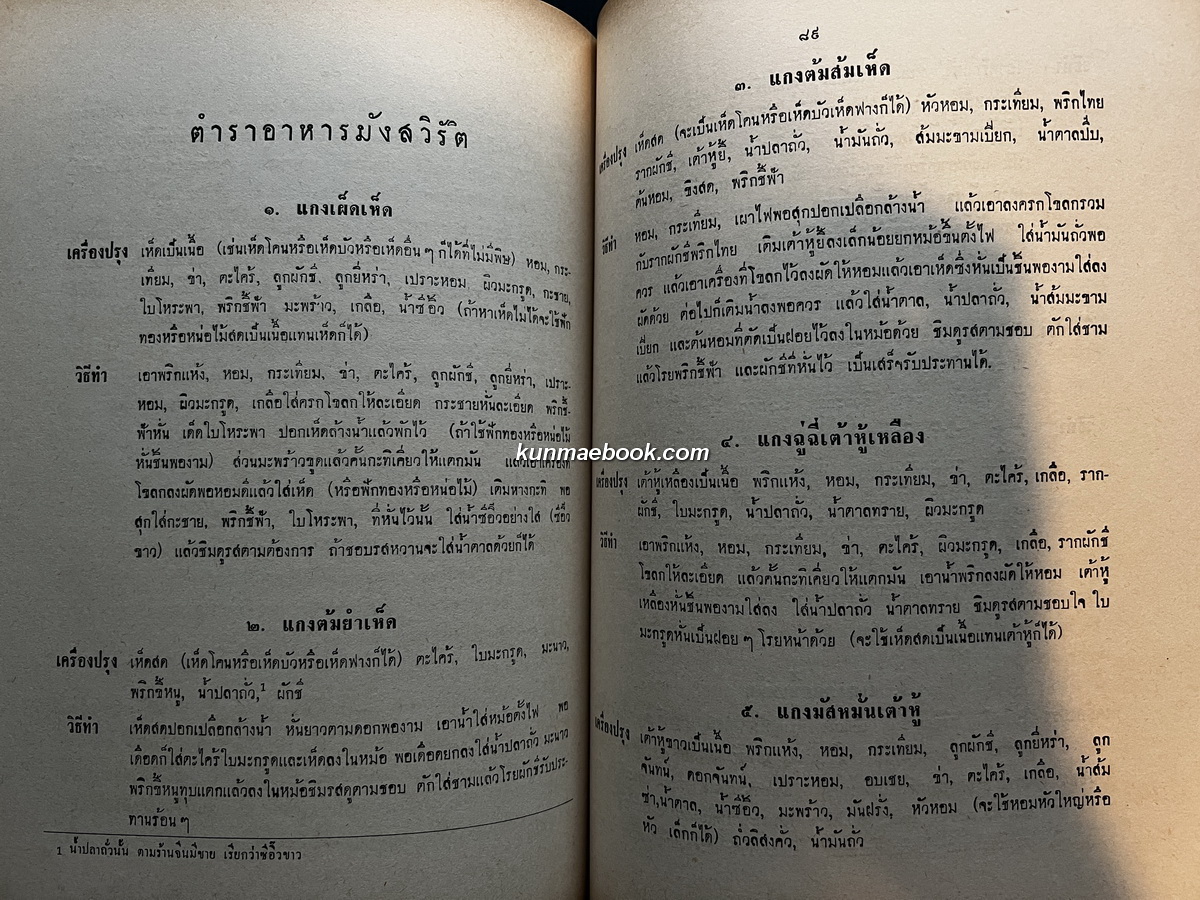 ตำราอาหารมังสวิรัติ
๑. แกงเผ็ดเห็ด
เครื่องปรุง เห็ดเป็นเนื้อ (เช่นเห็ดโคนหรือเห็ดบัวหรือเห็ดอื่น ๆ ก็ได้ที่ไม่มีพิษ) หอม, กระ-
เทียม, ข่า, ตะไคร้, ลูกผักชี, ลูกยี่หร่า, เปราะหอม, ผิวมะกรูด, กะชาย,
ใบโหระพา, พริกชี้ฟ้า มะพร้าว, เกลือ, น้ำซีอิ๊ว (ถ้าหาเห็ดไม่ได้จะใช้ฟัก
ทองหรือหน่อไม้สดเป็นเนื้อแทนเห็ดก็ได้)
วิธีทำ เอาพริกแห้ง, หอม, กระเทียม, ข่า, ตะไคร้, ลูกผักชี, ลูกยี่หร่า, เปราะ-
หอม, ผิวมะกรูด, เกลือใส่ครกโขลกให้ละเอียด กระชายหั่นละเอียด พริกชี้-
ฟ้าหั่น เด็ดใบโหระพา ปอกเห็ดล้างน้ำแล้วพักไว้ (ถ้าใช้ฟักทองหรือหน่อไม้
หั่นชิ้นพองาม) ส่วนมะพร้าวขูดแล้วคั้นกะทิเคี่ยวให้แตกมัน แล้วเอาเครื่องที่
โขลกลงผัดพอหอมดีแล้วใส่เห็ด (หรือฟักทองหรือหน่อไม้) เติมหางกะทิ พอ
สุกใส่กะชาย, พริกชี้ฟ้า, ใบโหระพา, ที่หั่นไว้นั้น ใส่น้ำซีอิ๊วอย่างใส (ซีอิ๊ว
ขาว) แล้วชิมดูรสตามต้องการ ถ้าชอบรสหวานจะใส่น้ำตาลด้วยก็ได้
๒. แกงต้มยำเห็ด
เครื่องปรุง เห็ดสด (เห็ดโคนหรือเห็ดบัวหรือเห็ดฟางก็ได้) ตะไคร้, ใบมะกรูด, มะนาว,
พริกขี้หนู, น้ำปลาถั่ว,¹ ผักชี
วิธีทำ เห็ดสดปอกเปลือกล้างน้ำ หั่นยาวตามดอกพองาม เอาน้ำใส่หม้อตั้งไฟ พอ
เดือดก็ใส่ตะไคร้ใบมะกรูดและเห็ดลงในหม้อ พอเดือดยกลงใส่น้ำปลาถั่ว มะนาว
พริกขี้หนูทุบแตกแล้วลงในหม้อชิมรสดูตามชอบ ตักใส่ชามแล้วโรยผักชีรับประ-
ทานร้อน ๆ
1 น้ำปลาถั่วนั้น ตามร้านจีนมีขาย เรียกว่าซีอิ๊วขาว
๘๙
๓. แกงต้มส้มเห็ด
เครื่องปรุง เห็ดสด (จะเป็นเห็ดโคนหรือเห็ดบัวเห็ดฟางก็ได้) หัวหอม, กระเทียม, พริกไทย
รากผักชี, เต้าหู้ยี้, น้ำปลาถั่ว, น้ำมันถั่ว, ส้มมะขามเปียก, น้ำตาลปีบ,
ต้นหอม, ขิงสด, พริกชี้ฟ้า
วิธีทำ หอม, กระเทียม, เผาไฟพอสุกปอกเปลือกล้างน้ำ แล้วเอาลงครกโขลกรวม
กับรากผักชีพริกไทย เติมเต้าหู้ยี้ลงเล็กน้อยยกหม้อขึ้นตั้งไฟ ใส่น้ำมันถั่วพอ
ควร แล้วเอาเครื่องที่โขลกไว้ลงผัดให้หอมแล้วเอาเห็ดซึ่งหั่นเป็นชิ้นพองามใส่ลง
ผัดด้วย ต่อไปก็เติมน้ำลงพอควร แล้วใส่น้ำตาล, น้ำปลาถั่ว, น้ำส้มมะขาม
เปียก และต้นหอมที่ตัดเป็นฝอยไว้ลงในหม้อด้วย ชิมดูรสตามชอบ ตักใส่ชาม
แล้วโรยพริกชี้ฟ้า และผักชีที่หั่นไว้ เป็นเสร็จรับประทานได้.
๔. แกงฉู่ฉี่เต้าหู้เหลือง
เครื่องปรุง เต้าหู้เหลืองเป็นเนื้อ พริกแห้ง, หอม, กระเทียม, ข่า, ตะไคร้, เกลือ, ราก-
ผักชี, ใบมะกรูด, น้ำปลาถั่ว, น้ำตาลทราย, ผิวมะกรูด
วิธีทำ เอาพริกแห้ง, หอม, กระเทียม, ข่า, ตะไคร้, ผิวมะกรูด, เกลือ, รากผักชี
โขลกให้ละเอียด แล้วคั้นกะทิเคี่ยวให้แตกมัน เอาน้ำพริกลงผัดให้หอม เต้าหู้
เหลืองหั่นชิ้นพองามใส่ลง ใส่น้ำปลาถั่ว น้ำตาลทราย ชิมดูรสตามชอบใจ ใบ
มะกรูดหั่นเป็นฝอย ๆ โรยหน้าด้วย (จะใช้เห็ดสดเป็นเนื้อแทนเต้าหู้ก็ได้)
๕. แกงมัสหมั่นเต้าหู้
เครื่องปรุง เต้าหู้ขาวเป็นเนื้อ พริกแห้ง, หอม, กระเทียม, ลูกผักชี, ลูกยี่หร่า, ลูก
จันทน์, ดอกจันทน์, เปราะหอม, อบเชย, ข่า, ตะไคร้, เกลือ, น้ำส้ม
ซ่า,น้ำตาล, น้ำซีอิ๊ว, มะพร้าว, มันฝรั่ง, หัวหอม (จะใช้หอมหัวใหญ่หรือ
หัว เล็กก็ได้) ถั่วลิสงคั่ว, น้ำมันถั่ว
kunmaebook.com